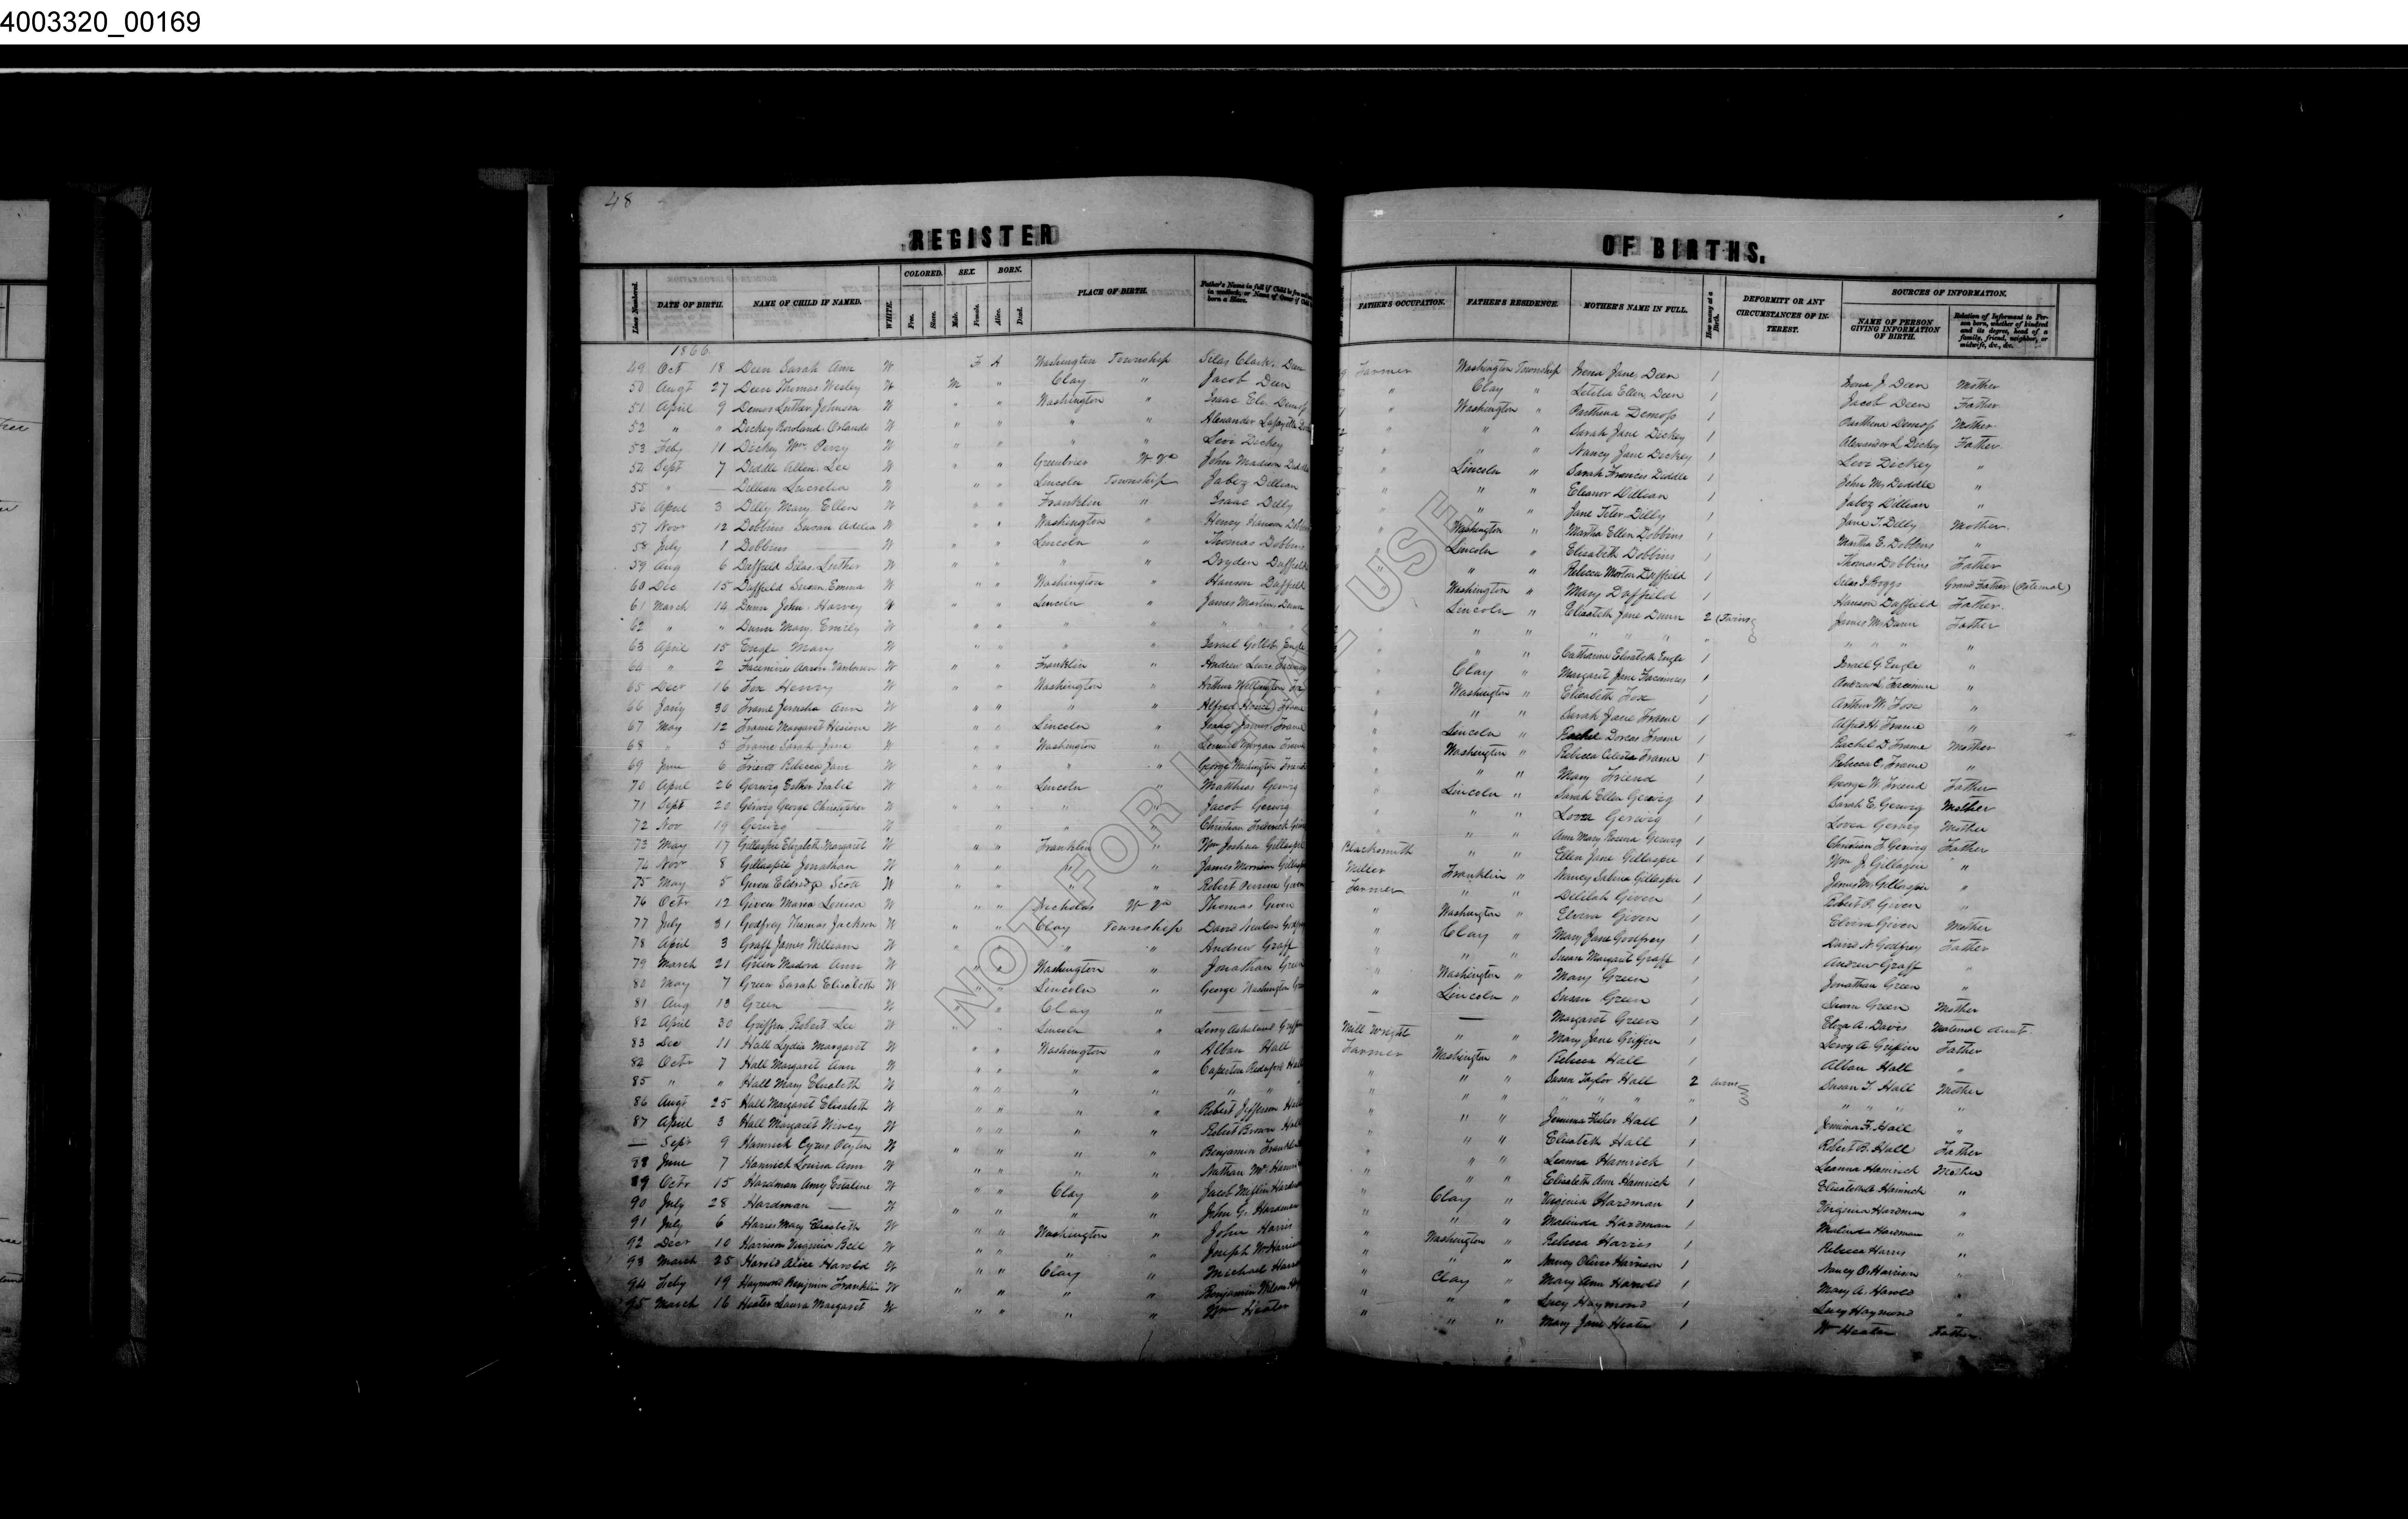 4003320_00169
48
REGISTER OF BIRTHS.
Lines Numbered. DATE OF BIRTH. NAME OF CHILD IF NAMED. WHITE. COLORED. Free. Slave. SEX. Male. Female. BORN. Alive. Dead. PLACE OF BIRTH. Father's Name in full if Child be free born in wedlock, or Name of Owner if Child born a Slave.
FATHER'S OCCUPATION. FATHER'S RESIDENCE. MOTHER'S NAME IN FULL. How many at a Birth. DEFORMITY OR ANY CIRCUMSTANCES OF INTEREST. SOURCES OF INFORMATION. NAME OF PERSON GIVING INFORMATION OF BIRTH. Relation of Informant to Person born, whether of kindred and its degree, head of a family, friend, neighbor, or midwife, &c., &c.
1866
49 Oct 18 Deen Sarah Ann W F A Washington Township Silas Clark Deen Farmer Washington Township Irena Jane Deen 1 Irena J. Deen Mother
50 Augt 27 Deen Thomas Wesley W M " Clay " Jacob Deen " Clay " Letitia Ellen Deen 1 Jacob Deen Father
51 April 9 Demos Luther Johnson W " " Washington " Isaac Demoss " Washington " Parthena Demoss 1 Parthena Demoss Mother
52 " " Dickey Rowland Orlando W " " " " Alexander Lafayette " " " Sarah Jane Dickey 1 Alexander L. Dickey Father
53 Feby 11 Dickey Wm Perry W " " " " Levi Dickey " " " Nancy Jane Dickey 1 Levi Dickey "
54 Sept 7 Diddle Allen Lee W " " Greenbrier W Va John Madison Diddle " Lincoln " Sarah Frances Diddle 1 John M. Diddle "
55 " — Dillian Lucretia W " " Lincoln Township Jabez Dillian " " " Eleanor Dillian 1 Jabez Dillian "
56 April 3 Dilly Mary Ellen W " " Franklin " Isaac Dilly " " " Jane Teter Dilly 1 Jane T. Dilly Mother
57 Novr 12 Dobbins Susan Adelia W " " Washington " Henry Dobbins " Washington " Martha Ellen Dobbins 1 Martha E. Dobbins "
58 July 1 Dobbins — W " " Lincoln " Thomas Dobbins " Lincoln " Elisabeth Dobbins 1 Thomas Dobbins Father
59 Aug 6 Duffield Silas Luther W " " " " Dryden Duffield " " " Rebecca Morton Duffield 1 Silas Boggs Grand Father
60 Dec 15 Duffield Susan Emma W " " Washington " Hanson Duffield Washington " Mary Duffield 1 Hanson Duffield Father
61 March 14 Dunn John Harvey W " " Lincoln " James Martin Dunn Lincoln " Elisabeth Jane Dunn 2 (Twins) James M. Dunn Father
62 " " Dunn Mary Emily W " " " " " " " " " " " " " " " " "
63 April 15 Engle Mary W " " " " Israel Gotleib Engle " " " Catharine Elisabeth Engle 1 Israel G. Engle "
64 " 2 Facemires Aaron Vanburen W " " Franklin " Andrew Lewis " Clay " Margaret Jane Facemires 1 Andrew L. Facemire "
65 Decr 16 Fox Henry W " " Washington " Arthur Wellington Fox " Washington " Elisabeth Fox 1 Arthur W. Fox "
66 Jany 30 Frame Jerusha Ann W " " " " Alfred Frame " " " Sarah Jane Frame 1 Alfred H. Frame "
67 May 12 Frame Margaret W " " Lincoln " Isaac James Frame " Lincoln " Rachel Dorcas Frame 1 Rachel D. Frame Mother
68 " 5 Frame Sarah Jane W " " Washington " Lemuel Morgan Frame " Washington " Rebecca Celesta Frame 1 Rebecca C. Frame "
69 June 6 Friend Rebecca Jane W " " " " George Washington Friend " " " Mary Friend 1 George W. Friend Father
70 April 26 Gerwig Esther Isabel W " " Lincoln " Matthias Gerwig " Lincoln " Sarah Ellen Gerwig 1 Sarah E. Gerwig Mother
71 Sept 20 Gerwig George Christopher W " " " " Jacob Gerwig " " " Lovea Gerwig 1 Lovea Gerwig Mother
72 Nov 19 Gerwig — W " " " Christian Frederick " " Ann Mary Rosina Gerwig 1 Christian F. Gerwig Father
73 May 17 Gillaspie Elizabeth Margaret W " " Franklin " Wm Joshua Gillaspie Blacksmith " " Ellen Jane Gillaspie 1 Wm J. Gillaspie "
74 Novr 8 Gillaspie Jonathan W " " " " James Morrison Miller Franklin " Nancy Sabina Gillaspie 1 James M. Gillaspie "
75 May 5 Given Eldridge Scott W " " " " Robert Perrine Given Farmer " " Delilah Given 1 Robert P. Given "
76 Octr 12 Given Maria Lenisa W " " Nicholas W Va Thomas Given " Washington " Elvira Given 1 Elvira Given Mother
77 July 31 Godfrey Thomas Jackson W " " Clay Township David Newlon " Clay " Mary Jane Godfrey 1 David N. Godfrey Father
78 April 3 Graff James William W " " " " Andrew Graff " " " Susan Margaret Graff 1 Andrew Graff "
79 March 21 Green Madora Ann W " " Washington " Jonathan Green " Washington " Mary Green 1 Jonathan Green "
80 May 7 Green Sarah Elisabeth W " " Lincoln " George Washington " Lincoln " Susan Green 1 Susan Green Mother
81 Aug 13 Green — W " " Clay " — — — Margaret Green 1 Eliza A. Davis Maternal Aunt
82 April 30 Griffin Robert Lee W " " Lincoln " Leroy Ashland Griffin Mill Wright " " Mary Jane Griffin 1 Leroy A. Griffin Father
83 Dec 11 Hall Lydia Margaret W " " Washington " Alban Hall Farmer Washington " Rebecca Hall 1 Alban Hall "
84 Octr 7 Hall Margaret Ann W " " " " Caperton Redaford Hall " " " Susan Taylor Hall 2 Susan T. Hall Mother
85 " " Hall Mary Elisabeth W " " " " " " " " " " " " " " " " "
86 Augt 25 Hall Margaret Elisabeth W " " " " Robert Jefferson Hall " " " Jemima Fisher Hall 1 Jemima F. Hall "
87 April 3 Hall Margaret Nancy W " " " " Robert Brown Hall " " " Elisabeth Hall 1 Robert B. Hall Father
— Sept 9 Hamrick Cyrus Peyton W " " " " Benjamin Franklin " " " Leanna Hamrick 1 Leanna Hamrick Mother
88 June 7 Hamrick Louisa Ann W " " " " Nathan " " " Elisabeth Ann Hamrick 1 Elisabeth A. Hamrick "
89 Octr 15 Hardman Amy Estaline W " " Clay " Jacob Mifflin Hardman " Clay " Virginia Hardman 1 Virginia Hardman "
90 July 28 Hardman — W " " " " John G. Hardman " " " Malinda Hardman 1 Malinda Hardman "
91 July 6 Harris Mary Elisabeth W " " Washington " John Harris " Washington " Rebecca Harris 1 Rebecca Harris "
92 Decr 10 Harrison Virginia Bell W " " " " Joseph W Harrison " " " Nancy Olive Harrison 1 Nancy O. Harrison "
93 March 25 Harold Alice Harold W " " Clay " Michael " Clay " Mary Ann Harold 1 Mary A. Harold "
94 Feby 19 Haymond Benjamin Franklin W " " " " Benjamin Wilson " " " Lucy Haymond 1 Lucy Haymond "
95 March 16 Heater Laura Margaret W " " " " Wm Heater " " " Mary Jane Heater 1 Wm Heater Father
NOT FOR USE